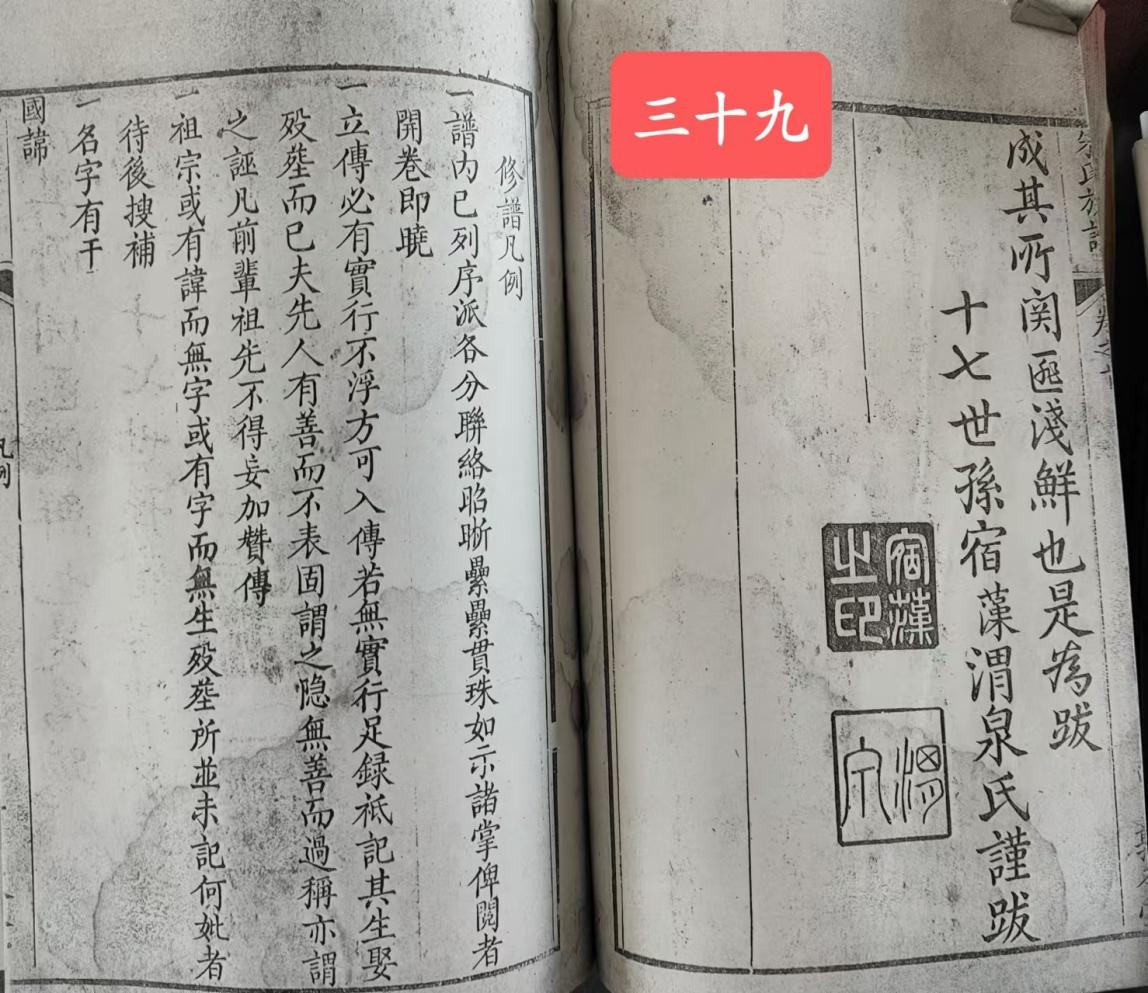 三十九
成其所関匪淺鮮也是為跋
十七世孫宿藻渭泉氏謹跋
宿藻
之印
渭
泉
修譜凡例
一譜內已列序派各分聯絡昭晰纍纍貫珠如示諸掌俾閱者
開卷即曉
一立傳必有實行不浮方可入傳若無實行足録祇記其生娶
歿塟而已夫先人有善而不表固謂之隐無善而過稱亦謂
之誣凡前輩祖先不得妄加贊傳
一祖宗或有諱而無字或有字而無生歿塟所並未記何妣者
待後搜補
一名字有干
國諱
凡例